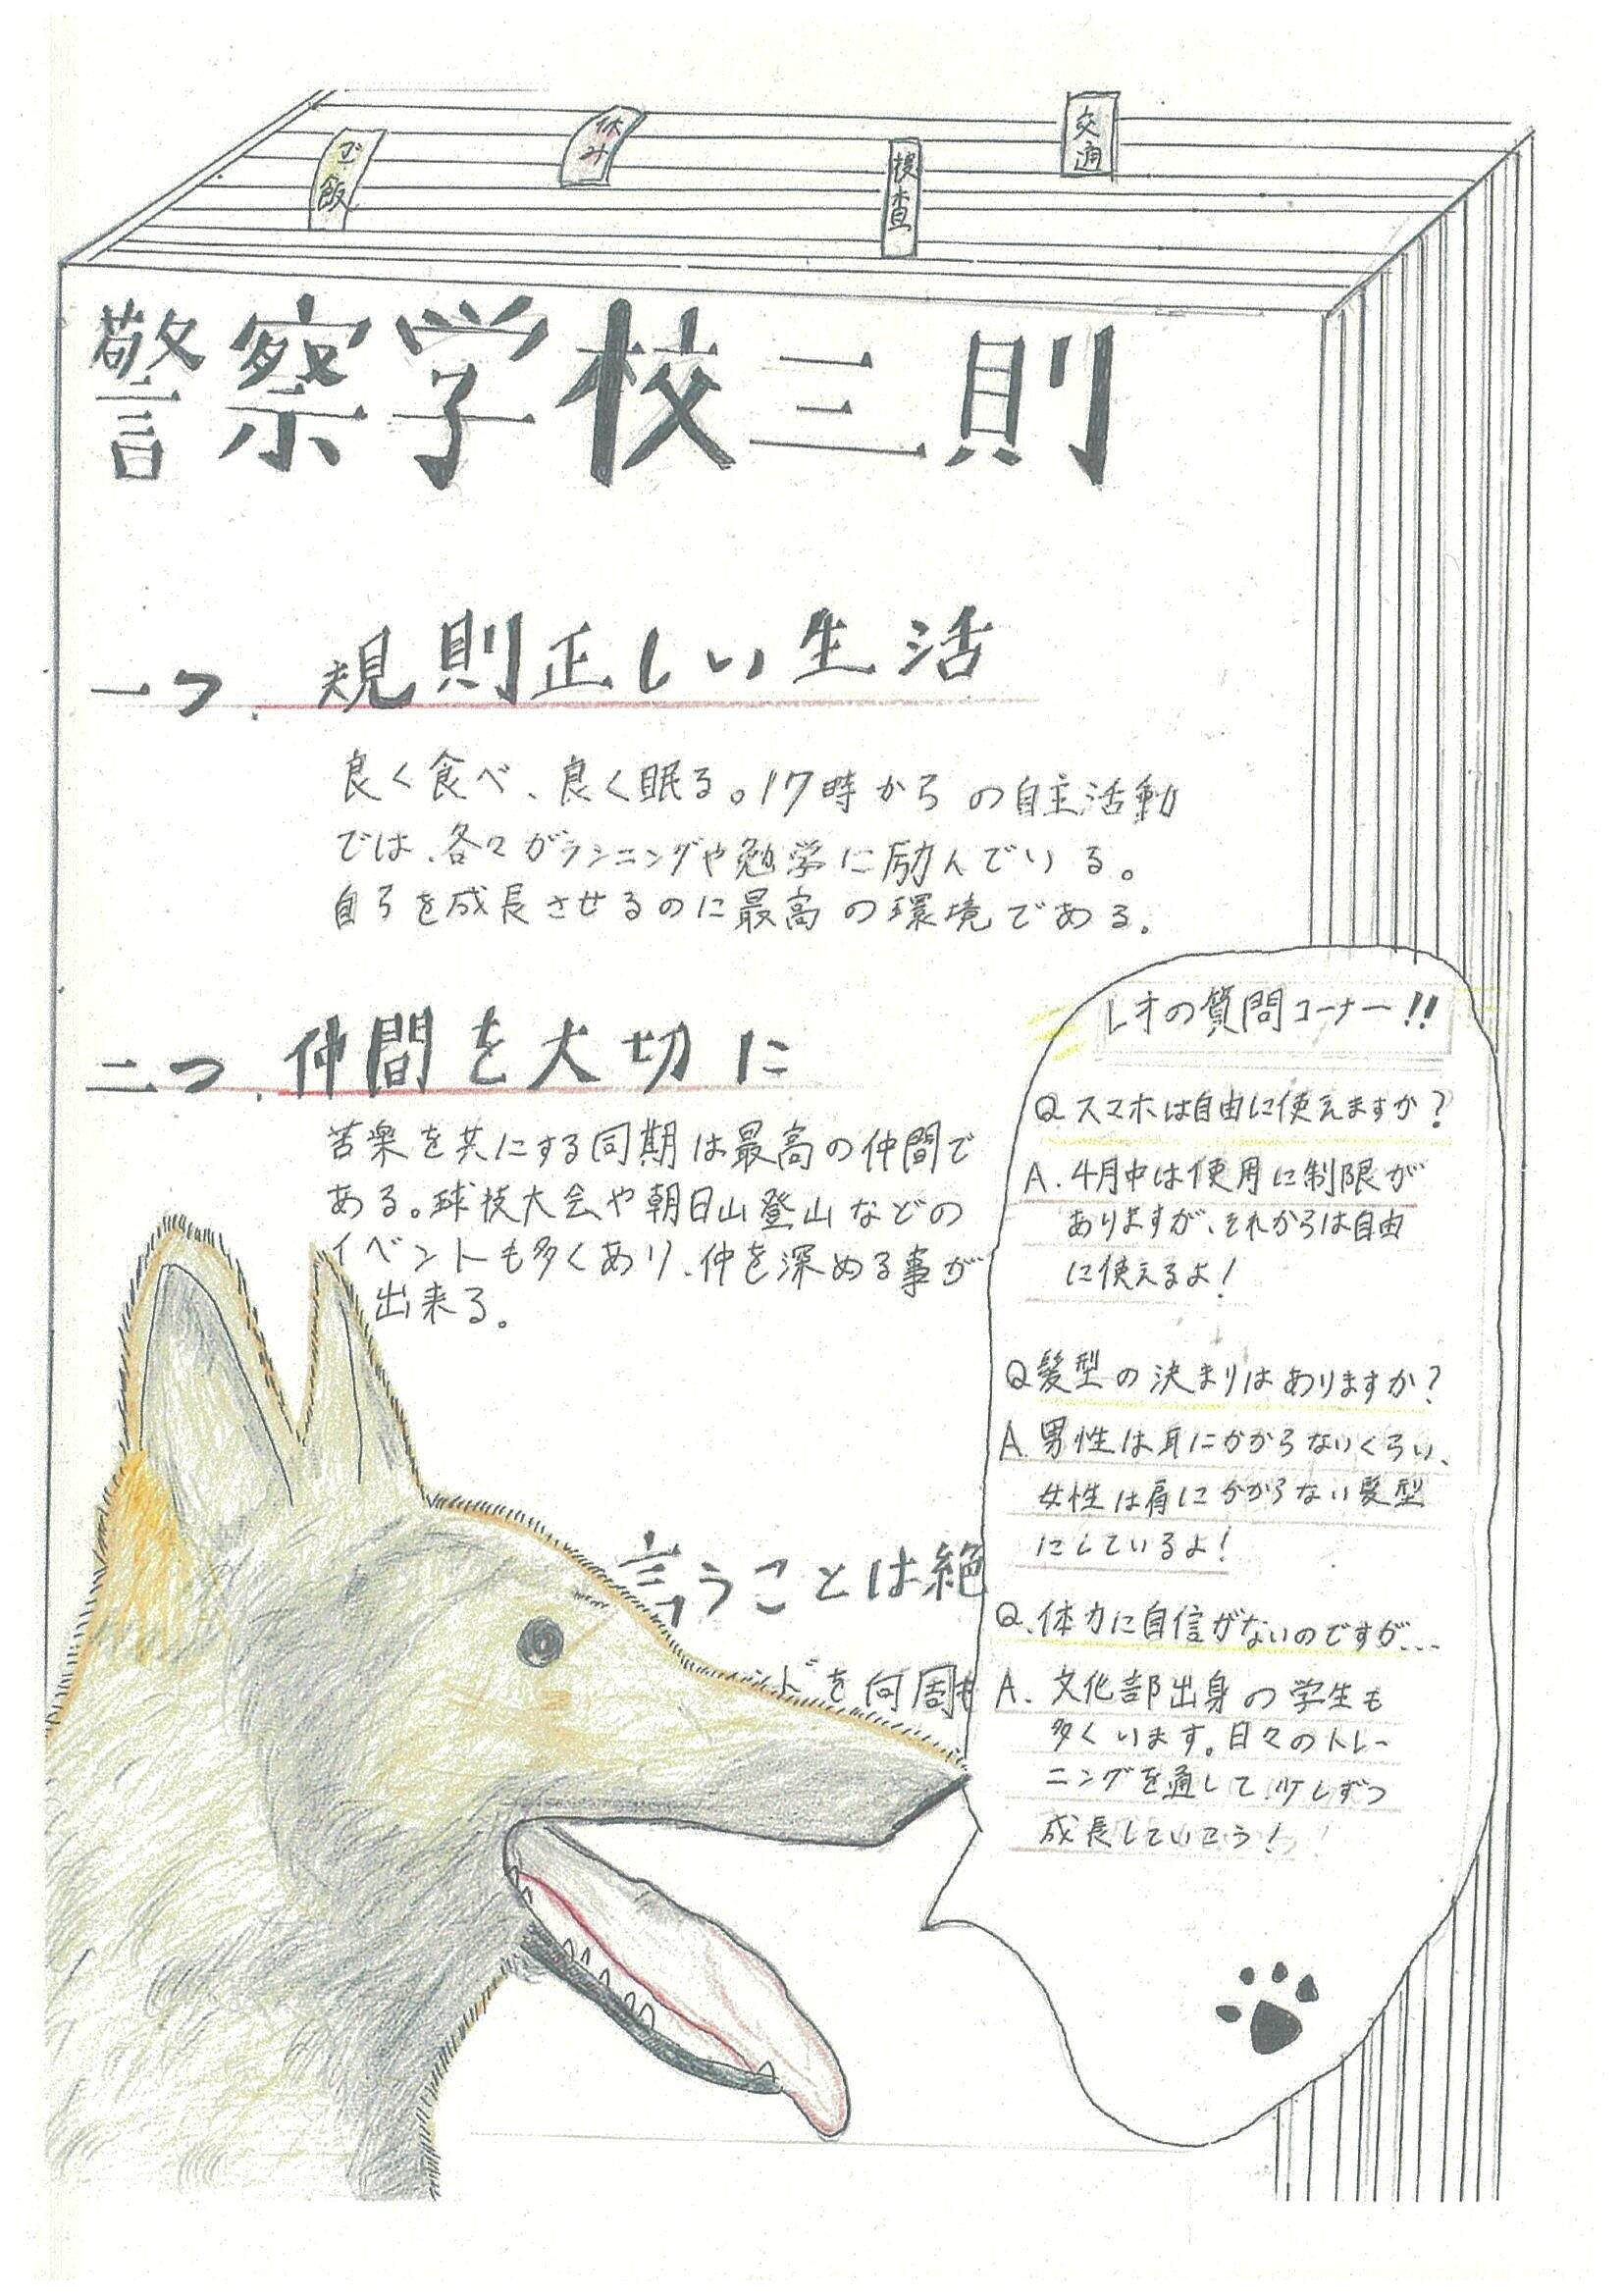 ご飯
休み
捜査
交通
警察学校三則
一つ、規則正しい生活
良く食べ、良く眠る。17時からの自主活動
では、各々がランニングや勉学に励んでいる。
自らを成長させるのに最高の環境である。
二つ、仲間を大切に
苦楽を共にする同期は最高の仲間で
ある。球技大会や朝日山登山などの
イベントも多くあり、仲を深める事が
出来る。
言うことは絶
ンドを何周も
レオの質問コーナー!!
Q スマホは自由に使えますか?
A. 4月中は使用に制限が
ありますが、それからは自由
に使えるよ!
Q 髪型の決まりはありますか?
A. 男性は耳にかからないくらい、
女性は肩にかからない髪型
にしているよ!
Q. 体力に自信がないのですが...
A. 文化部出身の学生も
多くいます。日々のトレー
ニングを通して少しずつ
成長していこう!